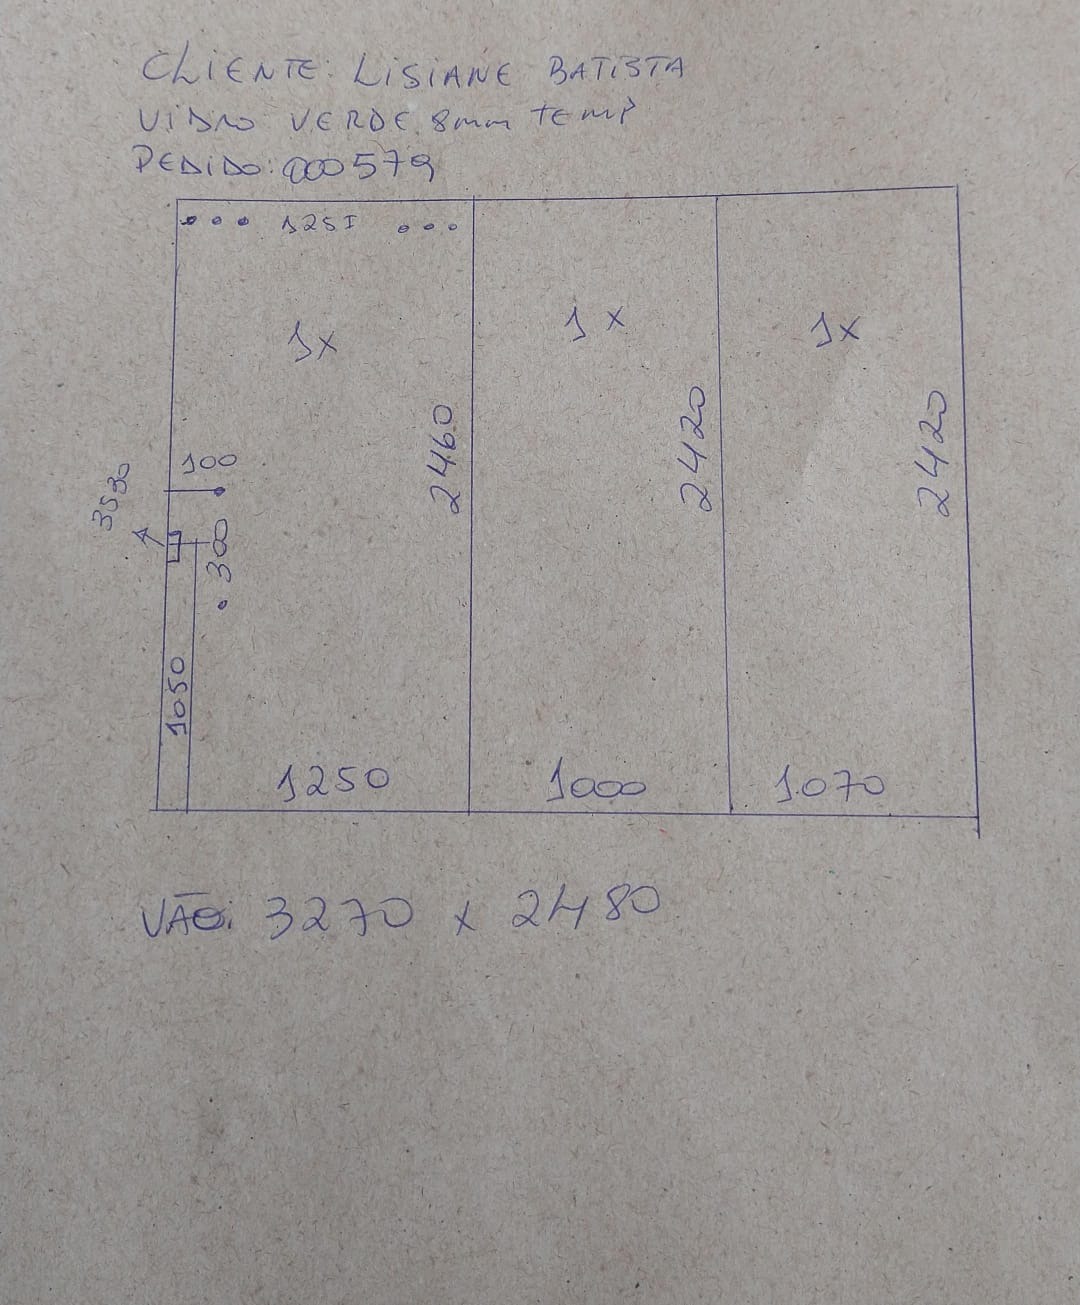 CLIENTE: LISIANE BATISTA
VIDRO VERDE 8mm TEMP
PEDIDO: 000579
125I
1x
1x
1x
2460
2420
2420
100
3530
300
1050
1250
1000
1.070
VÃO: 3270 x 2480